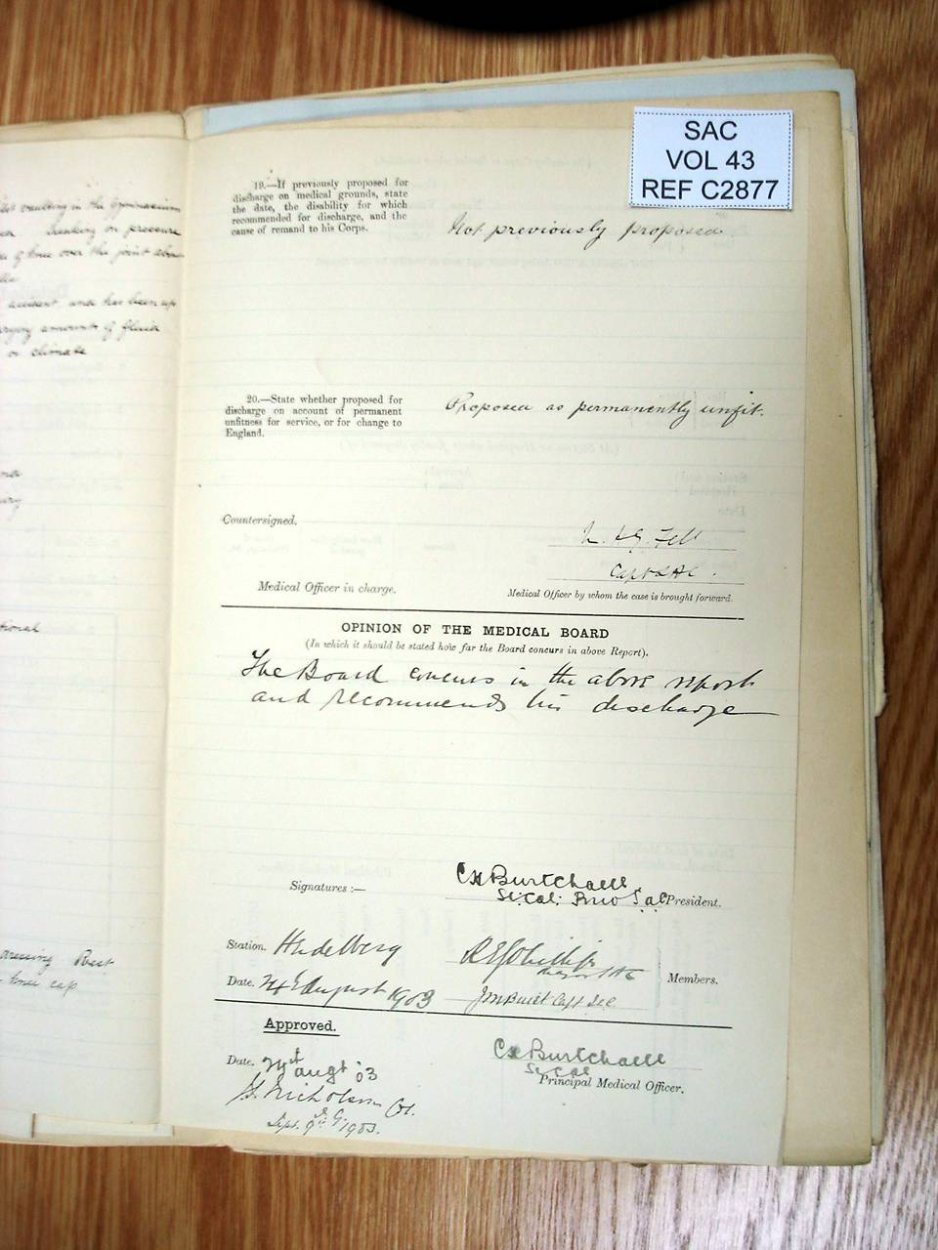 SAC
VOL 43
REF C2877
resulting in the Gymnasium
on pressure
of bone over the joint
accident and has been up
varying amounts of fluid
or climate
Rest
knee cap
19.—If previously proposed for
discharge on medical grounds, state
the date, the disability for which
recommended for discharge, and the
cause of remand to his Corps.
Not previously proposed
20.—State whether proposed for
discharge on account of permanent
unfitness for service, or for change to
England.
Proposed as permanently unfit.
Countersigned,
Fell
Capt SAC.
Medical Officer in charge.
Medical Officer by whom the case is brought forward.
OPINION OF THE MEDICAL BOARD
(In which it should be stated how far the Board concurs in above Report).
The Board concurs in the above report
and recommends his discharge
Signatures:—
Burtchaell
President.
Station. Heidelberg
Members.
Date. 24th August 1903
Approved.
Date. Augt 03
Burtchaell
Principal Medical Officer.
Nicholson Col.
Sept. 9th 1903.